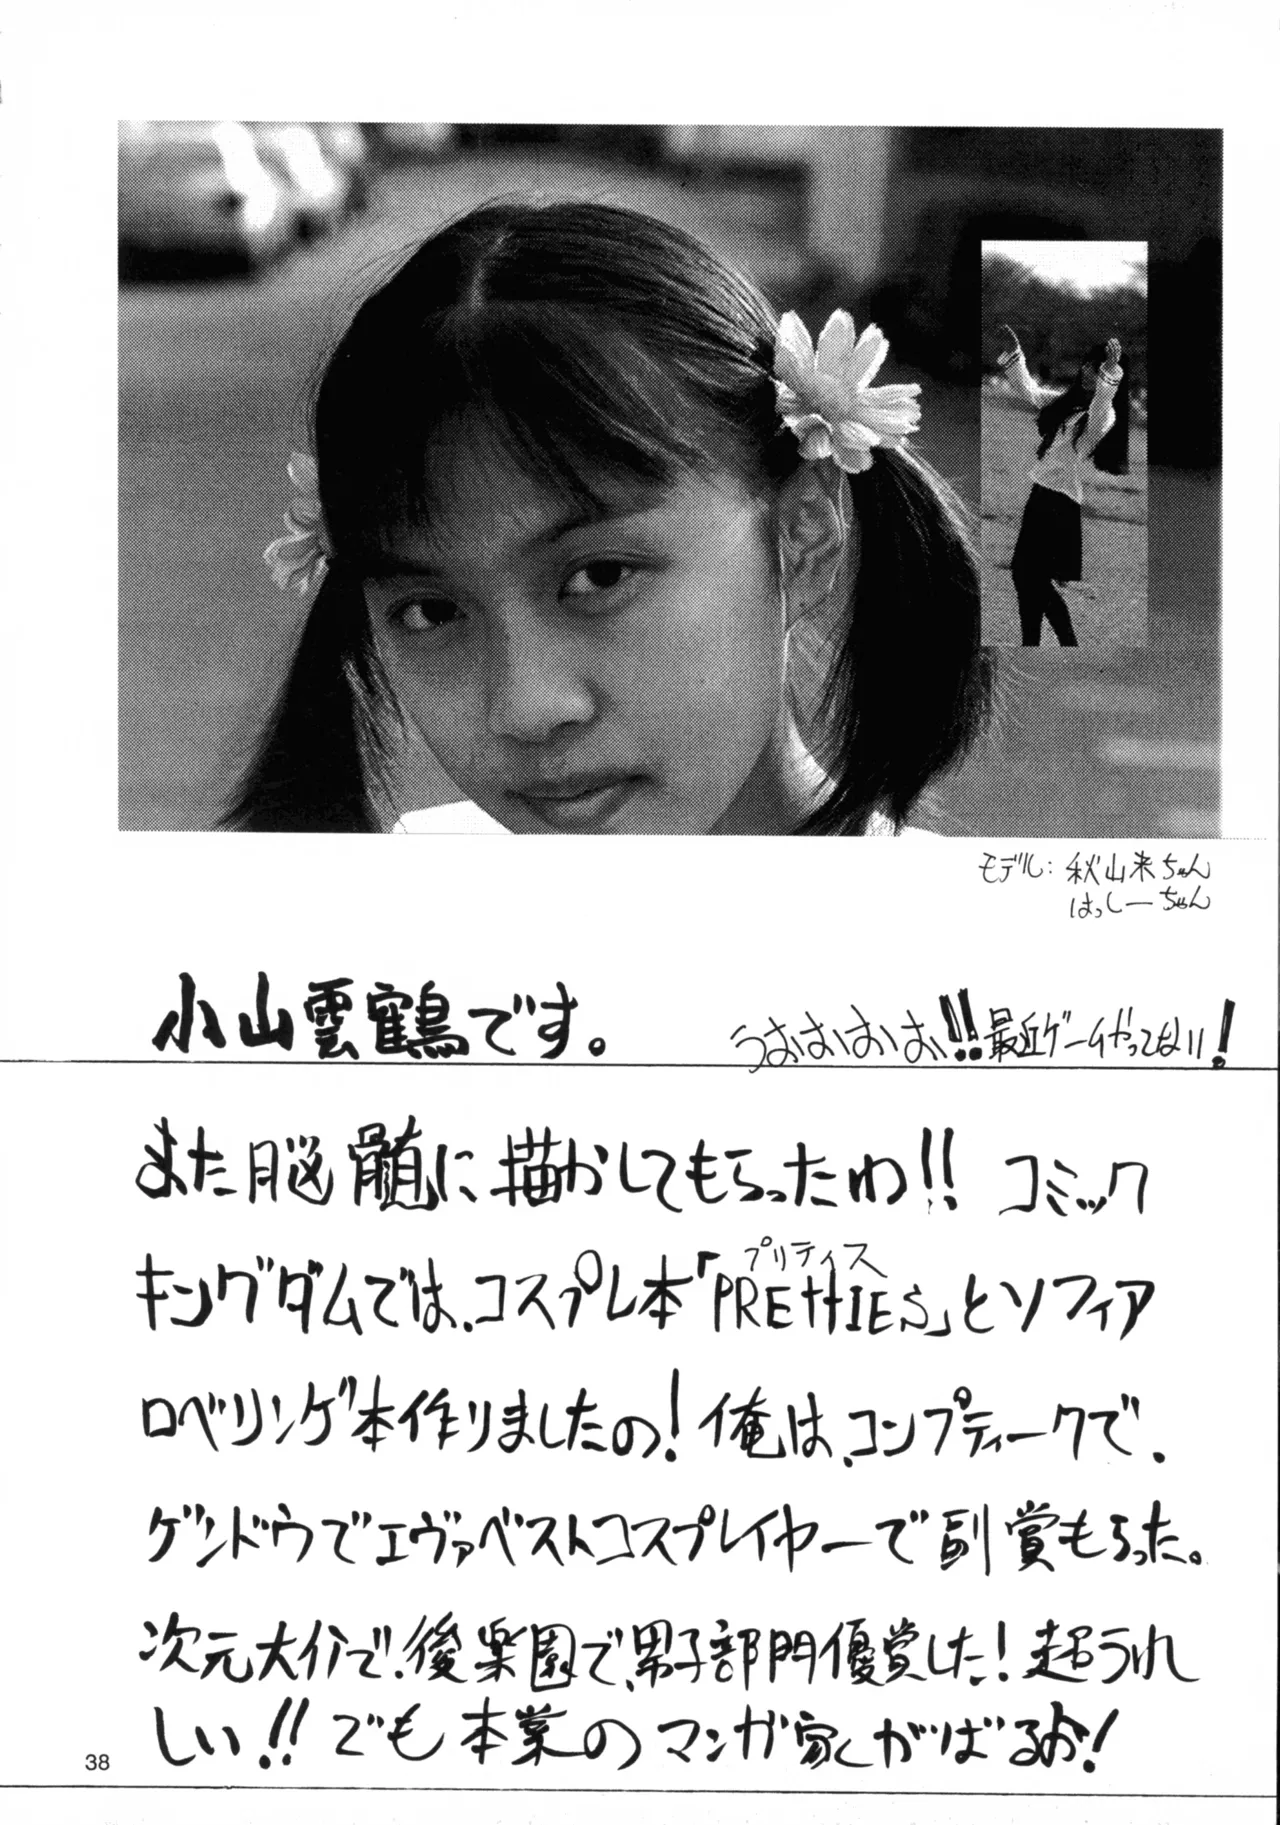 モデル：秋山来ちゃん
はっしーちゃん
小山雲鶴です。
うおおおおお!!最近ゲームやってない!
また脳髄に描かしてもらったわ!! コミック
キングダムでは、コスプレ本「PREttIES」とソフィア
プリティス
ロベリンゲ本作りましたの!俺は、コンプティークで、
ゲンドウでエヴァベストコスプレイヤーで副賞もらった。
次元大介で、後楽園で、男子部門優賞した!超うれ
しい!!でも本業のマンガ家くがばるお!
38